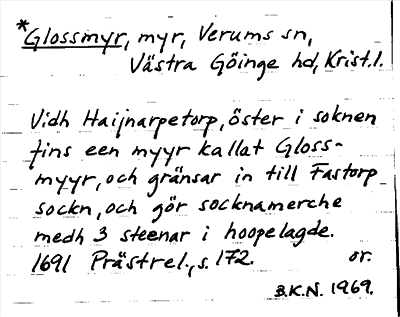 *Glossmyr, myr, Verums sn,
Västra Göinge hd, Krist. l.
Vidh Haijnarpetorp, öster i soknen
fins een myyr kallat Gloss-
myyr, och gränsar in till Fastorp
sockn, och gör socknamerche
medh 3 steenar i hoopelagde.
1691 Prästrel., s. 172. or.
B.K.N. 1969.